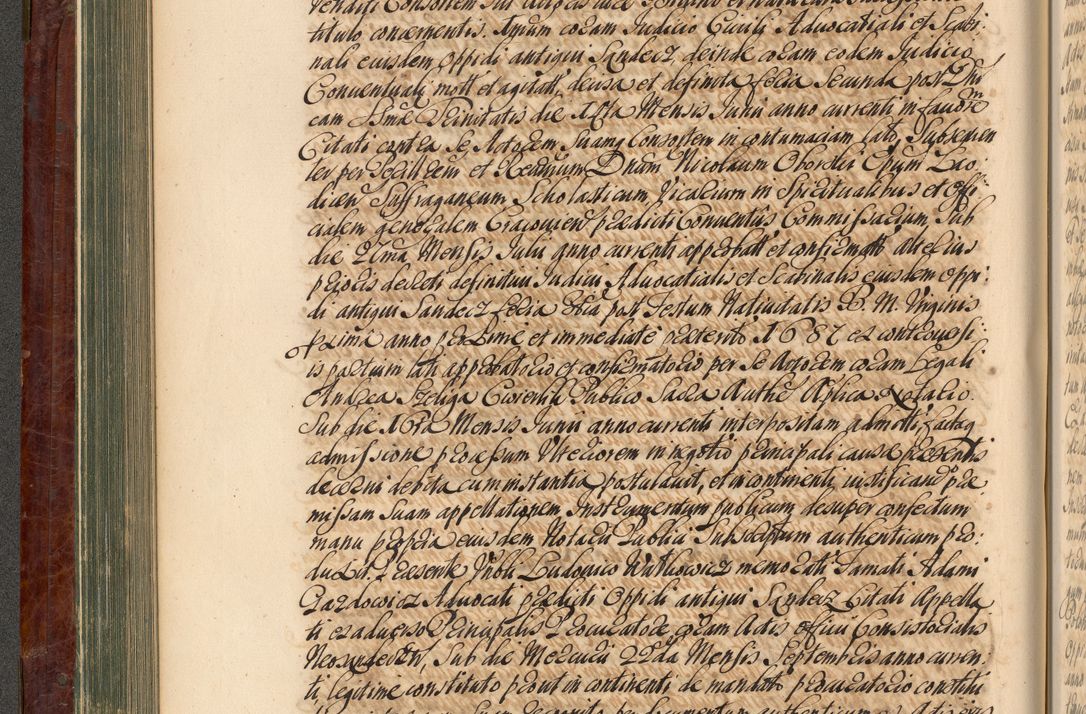 titulo concernentis. Primum coram Judicio Civili Advocatiali et Scabi:
nali eiusdem Oppidi antiqui Sandecz, deinde coram eodem Judicio
Conventuali mott et agitatt, decisa et definita feria secunda post Dni
cam SSmæ Trinitatis die Mensis Junii anno currenti in favore
Citati contra se Actorem suamq Consortem in contumaciam lato, subsequen
ter per Perillrem et Rendmum Dnum Nicolaum Oborski Epum Lao:
dicen Suffraganeum Scholasticum Vicarium in Spiritualibus et Offi:
cialem generalem Cracovien prædicti Conventus Commissarium, sub
die 21ma Mensis Julii anno currenti approbatt et confirmatt
prioris decreti definitivi Judicii Advocatialis et Scabinalis eiusdem Oppi:
di antiqui Sandecz feria post Festum Nativitatis B. M. Virginis
prima anno proxime et immediate præterito 1687 ex controversi:
is partium lati approbatorio et confirmatorio per se Actorem coram Legali
Andrea Szeliga Curen Publico Sacra Authe Aplica Notario.
Sub die 16ta Mensis Junii anno currenti interpositam admitti, factaq
admissione processum Ulteriorem in negotio principali causæ præsentis
decerni debita cum instantia postulavit, et in continenti iustificando præ
missam suam appellationem Instrumentum publicum desuper confectum
manu propria eiusdem Notarii Publici Subscriptum authenticum pro:
duxit. Præsente Nobli Ludovico Watlowicz memorati Famati Adami
Zazdowicz Advocati prædicti Oppidi antiqui Sandecz Citati Appella
ti ex adverso Principalis Procuratore, coram Actis Officii Consistorialis
Neosandecen, Sub die Mercurii 22da Mensis Septembris anno curren:
ti, legitime constituto prout in continenti de mandato procuratorio constiti